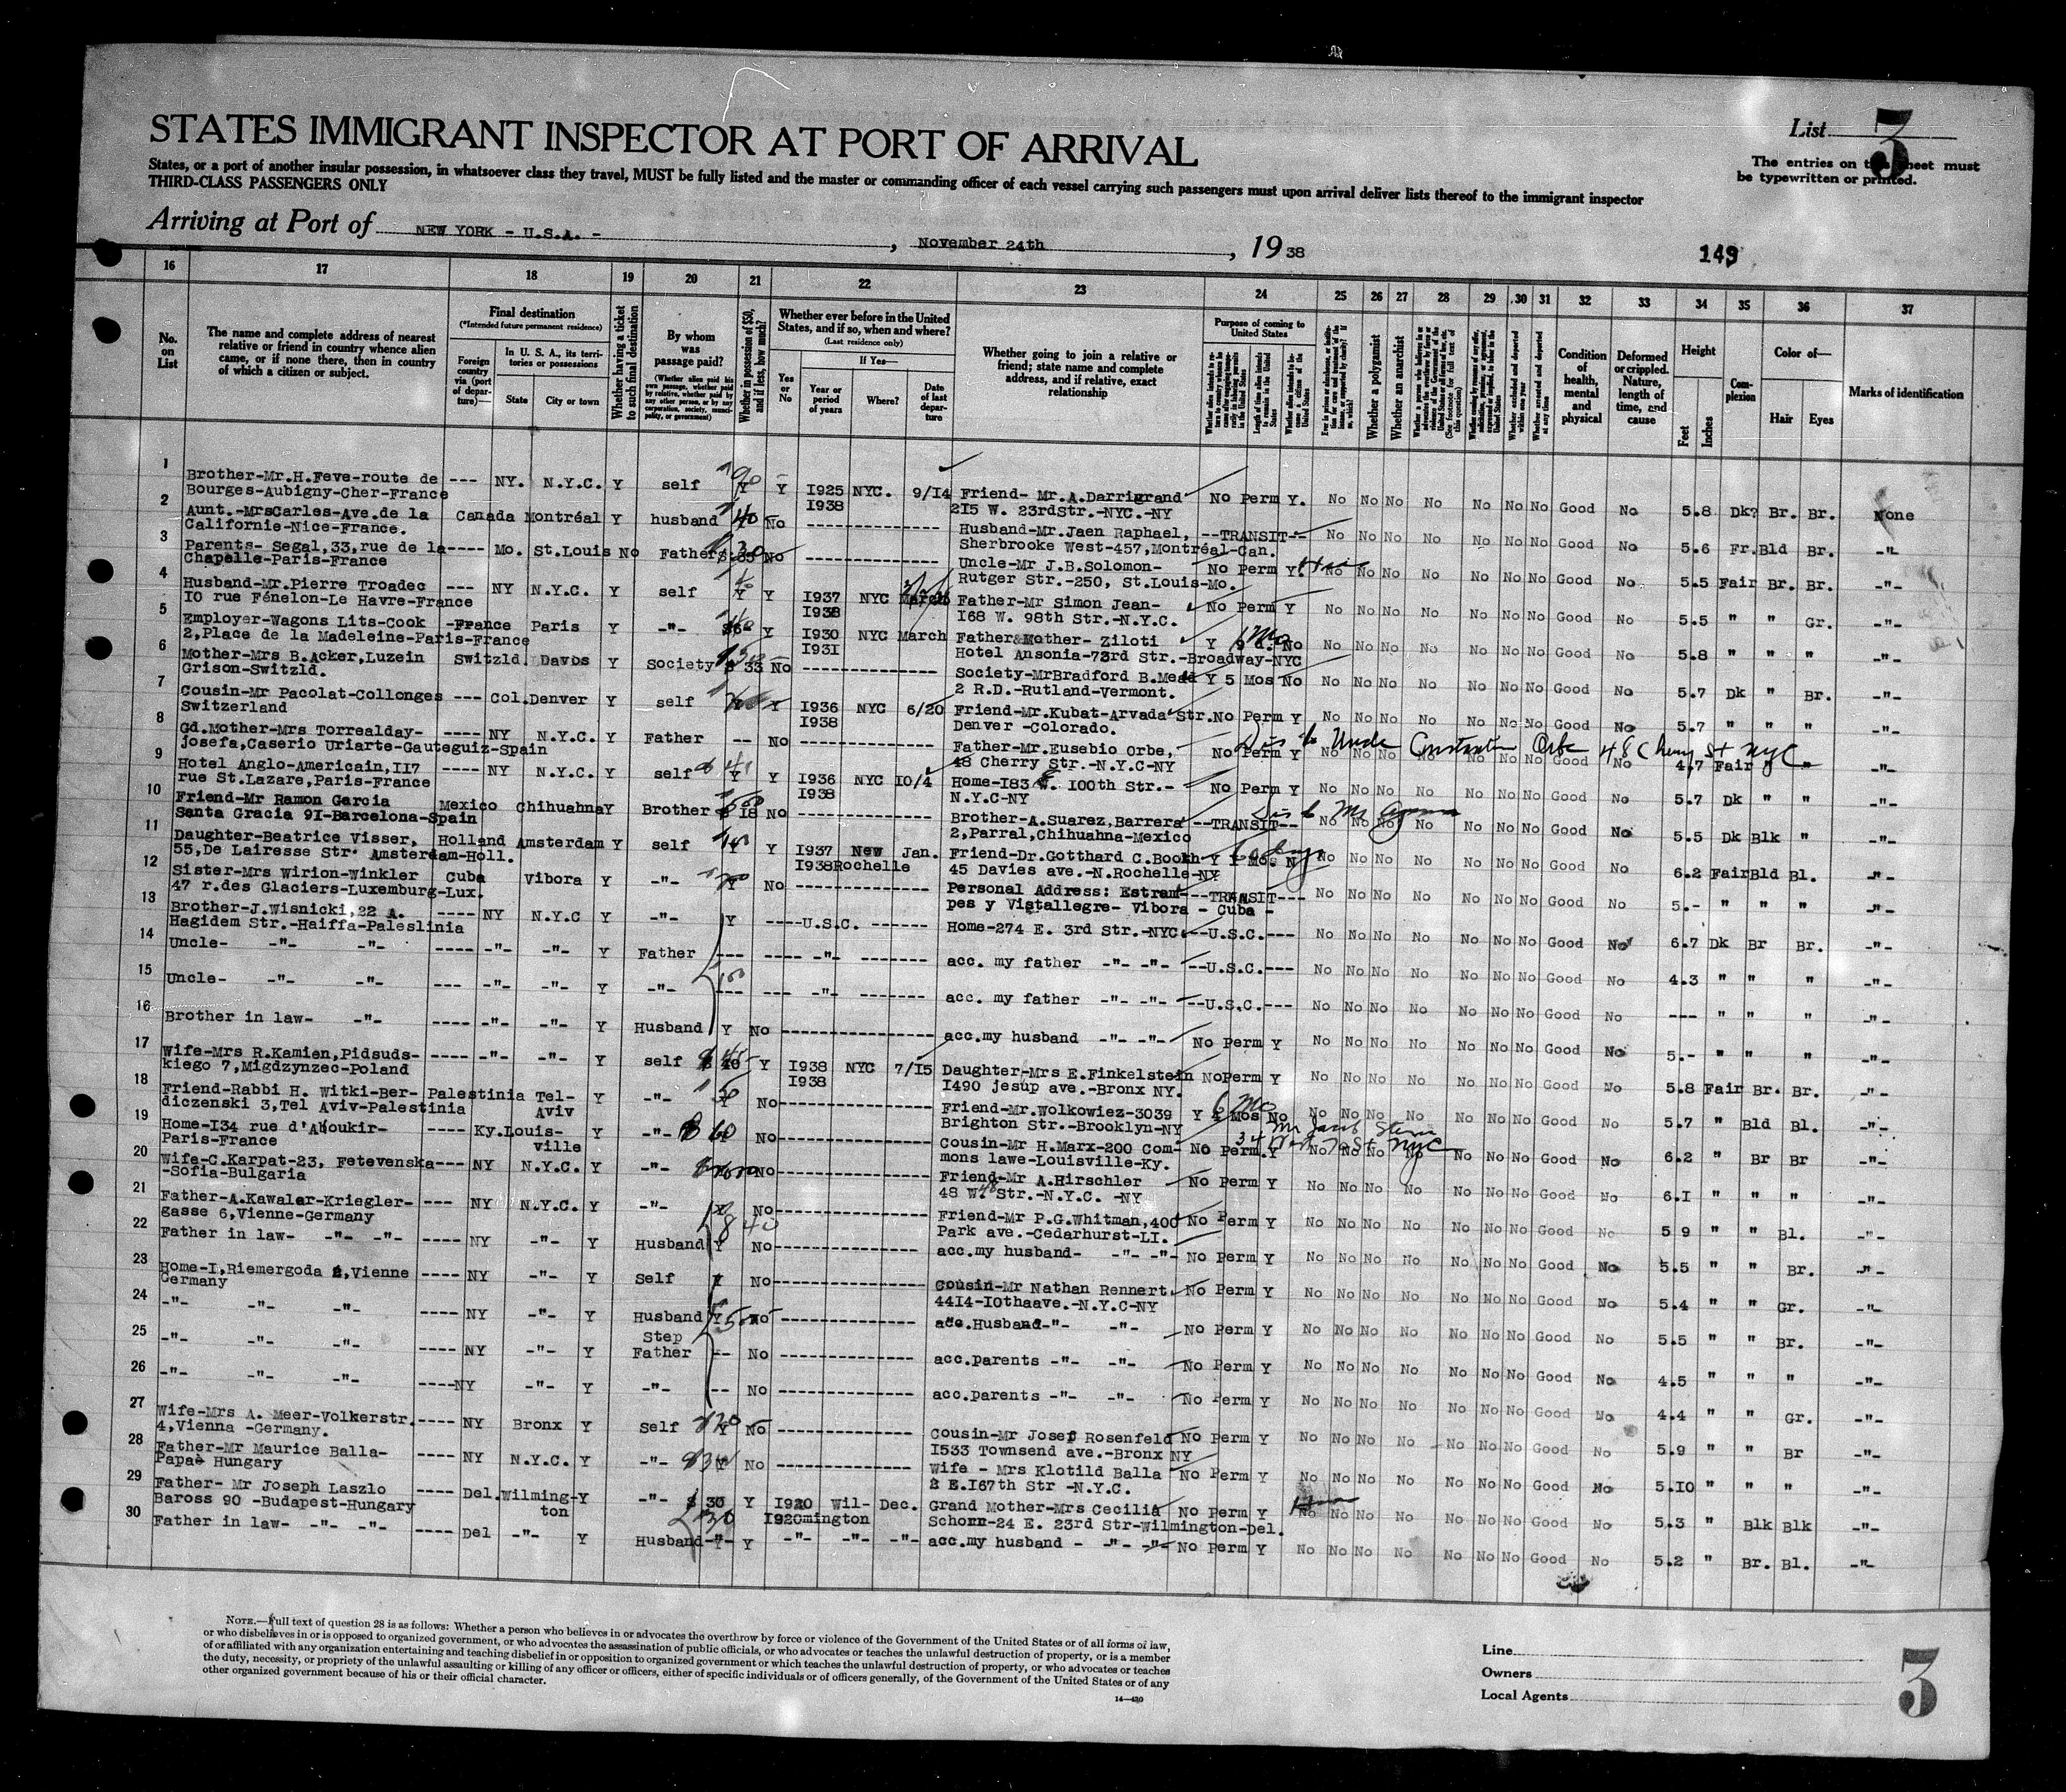 List 3
STATES IMMIGRANT INSPECTOR AT PORT OF ARRIVAL
The entries on this sheet must
be typewritten or printed.
States, or a port of another insular possession, in whatsoever class they travel, MUST be fully listed and the master or commanding officer of each vessel carrying such passengers must upon arrival deliver lists thereof to the immigrant inspector
THIRD-CLASS PASSENGERS ONLY
Arriving at Port of NEW YORK - U.S.A. - , November 24th , 19 38
149
16 17 18 19 20 21 22 23 24 25 26 27 28 29 30 31 32 33 34 35 36 37
No. on List
The name and complete address of nearest relative or friend in country whence alien came, or if none there, then in country of which a citizen or subject.
Final destination
(*Intended future permanent residence)
Foreign country via (port of departure)—
In U. S. A., its territories or possessions
State City or town
Whether having a ticket to such final destination
By whom was passage paid?
(Whether alien paid his own passage, whether paid by relative, whether paid by any other person, or by any corporation, society, municipality, or government)
Whether in possession of $50, and if less, how much?
Whether ever before in the United States, and if so, when and where?
(Last residence only)
Yes or No
If Yes—
Year or period of years Where? Date of last departure
Whether going to join a relative or friend; state name and complete address, and if relative, exact relationship
Purpose of coming to United States
Whether a polygamist
Whether an anarchist
Condition of health, mental and physical
Deformed or crippled. Nature, length of time, and cause
Height
Feet Inches
Complexion
Color of—
Hair Eyes
Marks of identification
1 Brother-Mr.H.Feve-route de --- NY. N.Y.C. Y self Y Y I925 NYC. 9/I4 Friend- Mr.A.Darrigrand No Perm Y. No No No No No No No Good No 5.8 Dk? Br. Br. None
Bourges-Aubigny-Cher-France I938 2I5 W. 23rdStr.-NYC.-NY
2 Aunt.-MrsCarles-Ave.de la Canada Montréal Y husband 40 No --- Husband-Mr.Jaen Raphael, --TRANSIT-- No No No No No No No Good No 5.6 Fr. Bld Br. -"-
Californie-Nice-France. Sherbrooke West-457,Montréal-Can.
3 Parents- Segal,33,rue de la ---- Mo. St.Louis No Father No --- Uncle-Mr J.B.Solomon- No Perm Y. No No No No No No No Good No 5.5 Fair Br. Br. -"-
Chapelle-Paris-France Rutger Str.-250, St.Louis-Mo.
4 Husband-Mr.Pierre Troadec --- NY N.Y.C. Y self Y Y I937 NYC March Father-Mr Simon Jean- No Perm Y No No No No No No No Good No 5.5 " " Gr. -"-
IO rue Fénelon-Le Havre-France I938 I68 W. 98th Str.-N.Y.C.
5 Employer-Wagons Lits-Cook -France Paris Y -"- Y I930 NYC March Father&Mother- Ziloti Y No No No No No No No No Good No 5.8 " " " -"-
2,Place de la Madeleine-Paris-France I93I Hotel Ansonia-73rd Str.-Broadway-NYC
6 Mother-Mrs B.Acker,Luzein Switzld. Davos Y Society $ 33 No Society-MrBradford B.Mead Y 5 Mos No No No No No No No No Good No 5.7 Dk " Br. -"-
Grison-Switzld. 2 R.D.-Rutland-Vermont.
7 Cousin-Mr Pacolat-Collonges --- Col. Denver Y self Y I936 NYC 6/20 Friend-Mr.Kubat-Arvada Str. No Perm Y No No No No No No No Good No 5.7 " " " -"-
Switzerland I938 Denver -Colorado.
8 Gd.Mother-Mrs Torrealday- ---- NY N.Y.C. Y Father -- No --- Father-Mr.Eusebio Orbe, No Perm Y No No No No No No No Good No 4.7 Fair " " -"-
josefa,Caserio Uriarte-Gauteguiz-Spain 48 Cherry Str.-N.Y.C-NY
Dis to Uncle Constantin Orbe 48 Cherry St NYC
9 Hotel Anglo-Americain,II7 ---- NY N.Y.C. Y self Y Y I936 NYC IO/4 Home-I83 W. IOOth Str.- No Perm Y No No No No No No No Good No 5.7 Dk " " -"-
rue St.Lazare,Paris-France I938 N.Y.C-NY
10 Friend-Mr Ramon Garcia Mexico Chihuahna Y Brother $ I8 No --- Brother-A.Suarez,Barrera --TRANSIT-- No No No No No No No Good No 5.5 Dk Blk " -"-
Santa Gracia 9I-Barcelona-Spain 2,Parral,Chihuahna-Mexico
11 Daughter-Beatrice Visser, Holland Amsterdam Y self Y Y I937 New Jan. Friend-Dr.Gotthard C.Booth Y No No No No No No No Good No 6.2 Fair Bld Bl. -"-
55,De Lairesse Str. Amsterdam-Holl. I938 Rochelle 45 Davies ave.-N.Rochelle-NY
12 Sister-Mrs Wirion-Winkler Cuba Vibora Y -"- Y No --- Personal Address: Estram- --TRANSIT--- No No No No No No No Good No 5.- " " " -"-
47 r.des Glaciers-Luxemburg-Lux. pes y Vistallegre- Vibora - Cuba -
13 Brother-J.Wisnicki,22 A. ---- NY N.Y.C Y -"- Y ----U.S.C. --- Home-274 E. 3rd Str.-NYC. --U.S.C.--- No No No No No No No Good No 6.7 Dk Br Br. -"-
Hagidem Str.-Haiffa-Paleslinia
14 Uncle- -"- -"- ---- -"- -"- Y Father --- ---- -"- --- acc. my father -"- -"- --U.S.C.--- No No No No No No No Good No 4.3 " " " -"-
15 Uncle- -"- -"- --- -"- -"- Y -"- --- --- -"- --- acc. my father -"- -"- --U.S.C.--- No No No No No No No Good No --- " " " -"-
16 Brother in law- -"- ---- -"- -"- Y Husband Y No --- acc.my husband -"- -"- No Perm Y No No No No No No No Good No 5.- " " " -"-
17 Wife-Mrs R.Kamien,Pidsuds- ---- -"- -"- Y self Y I938 NYC 7/I5 Daughter-Mrs E.Finkelstein No Perm Y No No No No No No No Good No 5.8 Fair Br. Br. -"-
kiego 7,Migdzynzec-Poland I938 I490 jesup ave.-Bronx NY.
18 Friend-Rabbi H. Witki-Ber- Palestinia Tel- Y -"- 50 No --- Friend-Mr.Wolkowiez-3039 Y Mos No No No No No No No No Good No 5.7 " Bld Bl. -"-
diczenski 3,Tel Aviv-Palestinia Aviv Brighton Str.-Brooklyn-NY
19 Home-I34 rue d'Aboukir- ---- Ky. Louis- Y -"- $ 60 No --- Cousin-Mr H.Marx-200 Com- No Perm. Y No No No No No No No Good No 6.2 " Br Br -"-
Paris-France ville mons lawe-Louisville-Ky.
20 Wife-C.Karpat-23, Fetevenska --- NY N.Y.C. Y -"- No --- Friend-Mr A.Hirschler No Perm Y No No No No No No No Good No 6.I " " " -"-
-Sofia-Bulgaria 48 W. Str.-N.Y.C. -NY
21 Father-A.Kawalar-Kriegler- --- NY N.Y.C. Y -"- No --- Friend-Mr P.G.Whitman,400 No Perm Y No No No No No No No Good No 5 9 " " Bl. -"-
gasse 6,Vienne-Germany Park ave.-Cedarhurst-LI.
22 Father in law- -"- -"- ---- NY -"- Y Husband Y No --- acc.my husband- -"- -"- No Perm Y No No No No No No No Good No 5.5 " " Br. -"-
23 Home-I,Riemergoda 2,Vienne ---- NY -"- Y Self No --- Cousin-Mr Nathan Rennert No Perm Y No No No No No No No Good No 5.4 " " Gr. -"-
Germany 44I4-IOthaave.-N.Y.C-NY
24 -"- -"- -"- ---- NY -"- Y Husband Y No --- acc.Husband-"- -"- No Perm Y No No No No No No No Good No 5.5 " " Br. -"-
25 -"- -"- -"- ---- NY -"- Y Step Father -- No --- acc.parents -"- -"- No Perm Y No No No No No No No Good No 4.5 " " " -"-
26 -"- -"- -"- ---- NY -"- Y -"- -- No --- acc.parents -"- -"- No Perm Y No No No No No No No Good No 4.4 " " Gr. -"-
27 Wife-Mrs A. Meer-Volkerstr. ---- NY Bronx Y Self No --- Cousin-Mr Josef Rosenfeld No Perm Y No No No No No No No Good No 5.9 " " Br -"-
4,Vienna -Germany. I533 Townsend ave.-Bronx NY
28 Father-Mr Maurice Balla- ---- NY N.Y.C. Y -"- No --- Wife - Mrs Klotild Balla No Perm Y No No No No No No No Good No 5.IO " " " -"-
Papaè Hungary 2 E.I67th Str -N.Y.C.
29 Father- Mr Joseph Laszlo ---- Del. Wilming- Y -"- $ 30 Y I920 Wil- Dec. Grand Mother-Mrs Cecilia No Perm Y No No No No No No No Good No 5.3 " Blk Blk -"-
Baross 90 -Budapest-Hungary ton I920 mington Schorn-24 E. 23rd Str-Wilmington-Del.
30 Father in law- -"- -"- ---- Del -"- Y Husband -"- Y -"- -"- -"- acc.my husband - -"- -"- No Perm Y No No No No No No No Good No 5.2 " Br. Bl. -"-
NOTE.—Full text of question 28 is as follows: Whether a person who believes in or advocates the overthrow by force or violence of the Government of the United States or of all forms of law,
or who disbelieves in or is opposed to organized government, or who advocates the assassination of public officials, or who advocates or teaches the unlawful destruction of property, or is a member
of or affiliated with any organization entertaining and teaching disbelief in or opposition to organized government or which teaches the unlawful destruction of property, or who advocates or teaches
the duty, necessity, or propriety of the unlawful assaulting or killing of any officer or officers, either of specific individuals or of officers generally, of the Government of the United States or of any
other organized government because of his or their official character.
14—430
Line
Owners
Local Agents
3